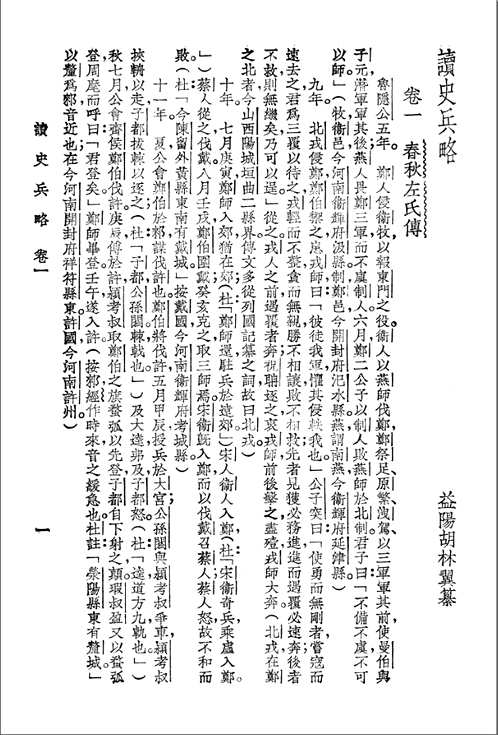 讀史兵略
益陽胡林翼纂
卷一 春秋左氏傳
魯隱公五年。鄭人侵衞牧以報東門之役。衞人以燕師伐鄭。鄭祭足、原繁、洩駕以三軍軍其前。使曼伯與
子元潛軍軍其後。燕人畏鄭三軍而不虞制人。六月鄭二公子以制人敗燕師於北制。君子曰「不備不虞不可
以師」（牧衞邑今河南衞輝府汲縣制鄭邑今開封府汜水縣燕謂南燕今衞輝府延津縣）
九年。北戎侵鄭。鄭伯禦之。患戎師曰「彼徒我車懼其侵軼我也」公子突曰「使勇而無剛者嘗寇而
速去之君爲三覆以待之戎輕而不整貪而無親勝不相讓敗不相救先者見獲必務進進而遇覆必速奔後者
不救則無繼矣乃可以逞」從之。戎人之前遇覆者奔祝聃逐之衷戎師前後擊之盡殪戎師大奔（北戎在鄭
之北者今山西陽城垣曲二縣界傳文多從列國記纂之詞故曰北戎）
十年。七月庚寅鄭師入郊猶在郊（杜「鄭師還駐兵於遠郊」）宋人衞人入鄭（杜「宋衞奇兵乘虛入鄭
」）蔡人從之伐戴八月壬戌鄭伯圍戴癸亥克之取三師焉宋衞既入鄭而以伐戴召蔡人蔡人怒故不和而
敗（杜「今陳留外黃縣東南有戴城」按戴國今河南衞輝府考城縣）
十一年。夏公會鄭伯於郲謀伐許也鄭伯將伐許五月甲辰授兵於大宮公孫閼與潁考叔爭車潁考叔
挾輈以走子都拔棘以逐之（杜「子都公孫閼棘戟也」）及大逵弗及子都怒（杜「逵道方九軌也」）
秋七月公會齊侯鄭伯伐許庚辰傅於許潁考叔取鄭伯之旗蝥弧以先登子都自下射之顛瑕叔盈又以蝥弧
登周麾而呼曰「君登矣」鄭師畢登壬午遂入許（按郲經作時來音之緩急也杜註「滎陽縣東有釐城」
以釐爲郲音近也在今河南開封府祥符縣東許國今河南許州）
讀史兵略 卷一
一